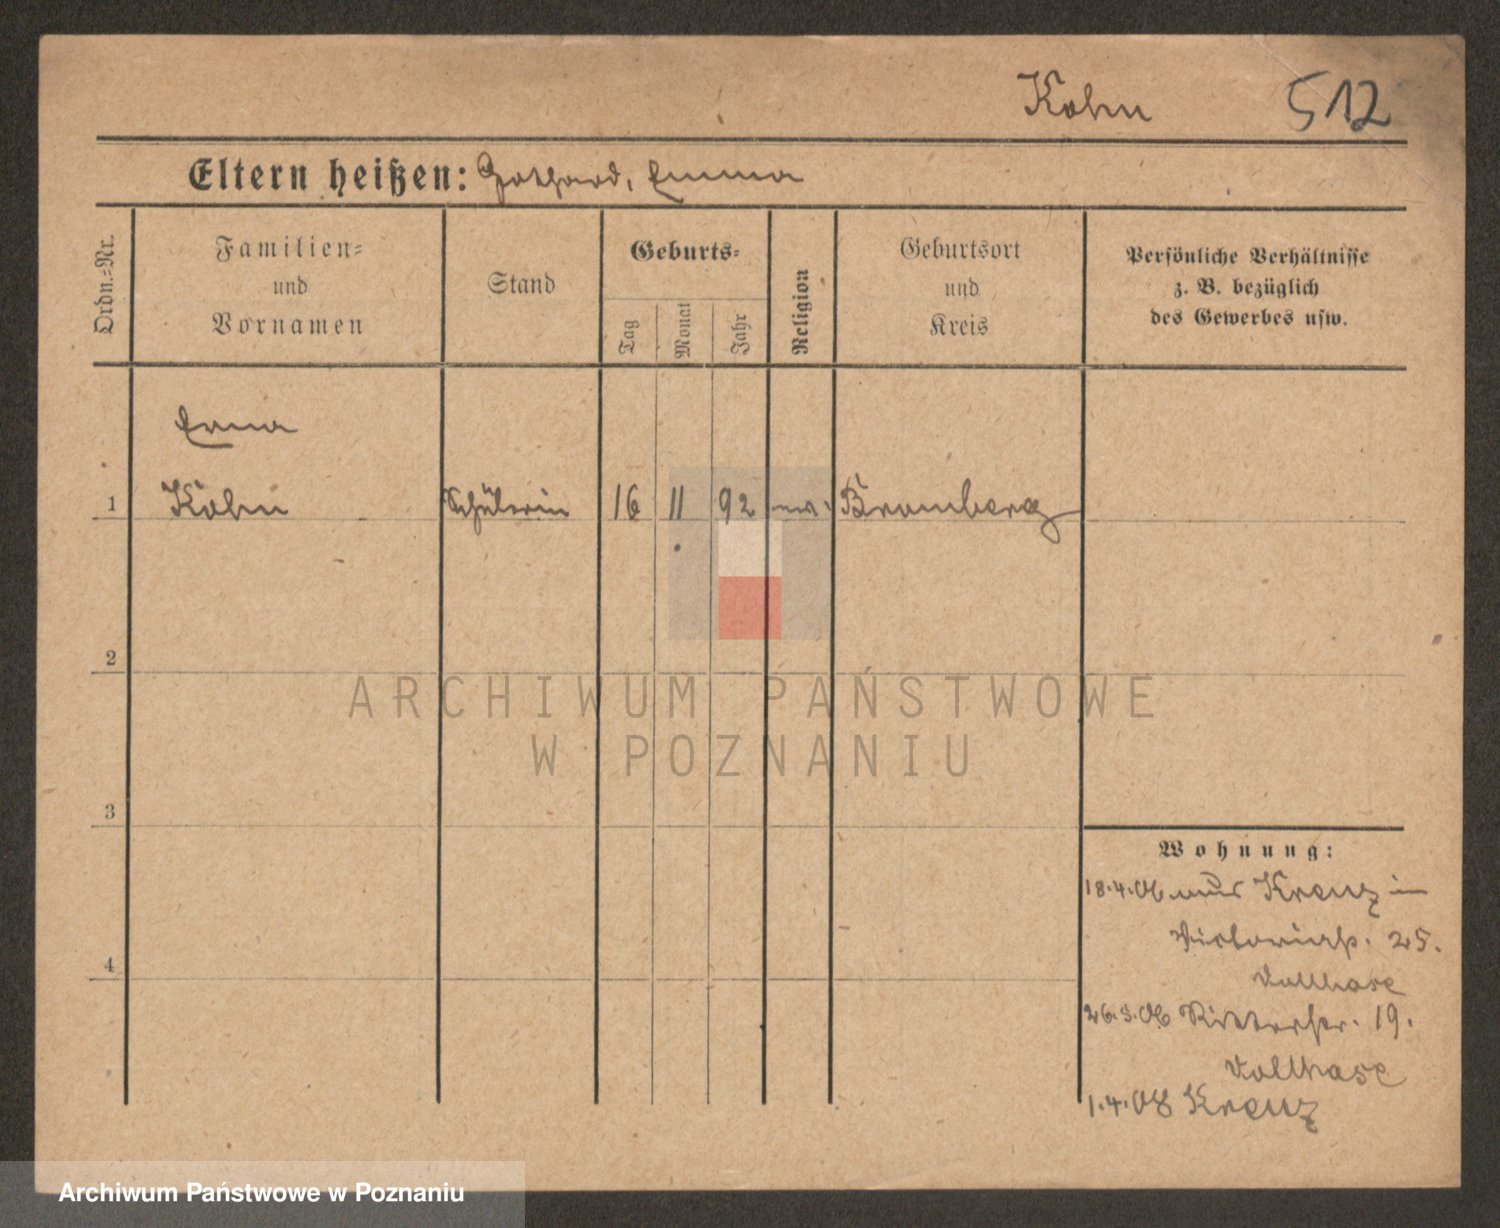 Kohn 512
Eltern heißen: Gothard, Emma
Ordn.-Nr.
Familien-
und
Vornamen
Stand
Geburts-
Tag
Monat
Jahr
Religion
Geburtsort
und
Kreis
Persönliche Verhältnisse
z. B. bezüglich
des Gewerbes usw.
Erna
1 Kohn Schülerin 16 11 92 mos. Bromberg
2
3
4
Wohnung:
18.4.06 aus Kreuz in
Victoriastr. 25.
Vollhase
26.3.06 Ritterstr. 19.
Vollhase
1.4.08 Kreuz
ARCHIWUM PAŃSTWOWE
W POZNANIU
Archiwum Państwowe w Poznaniu